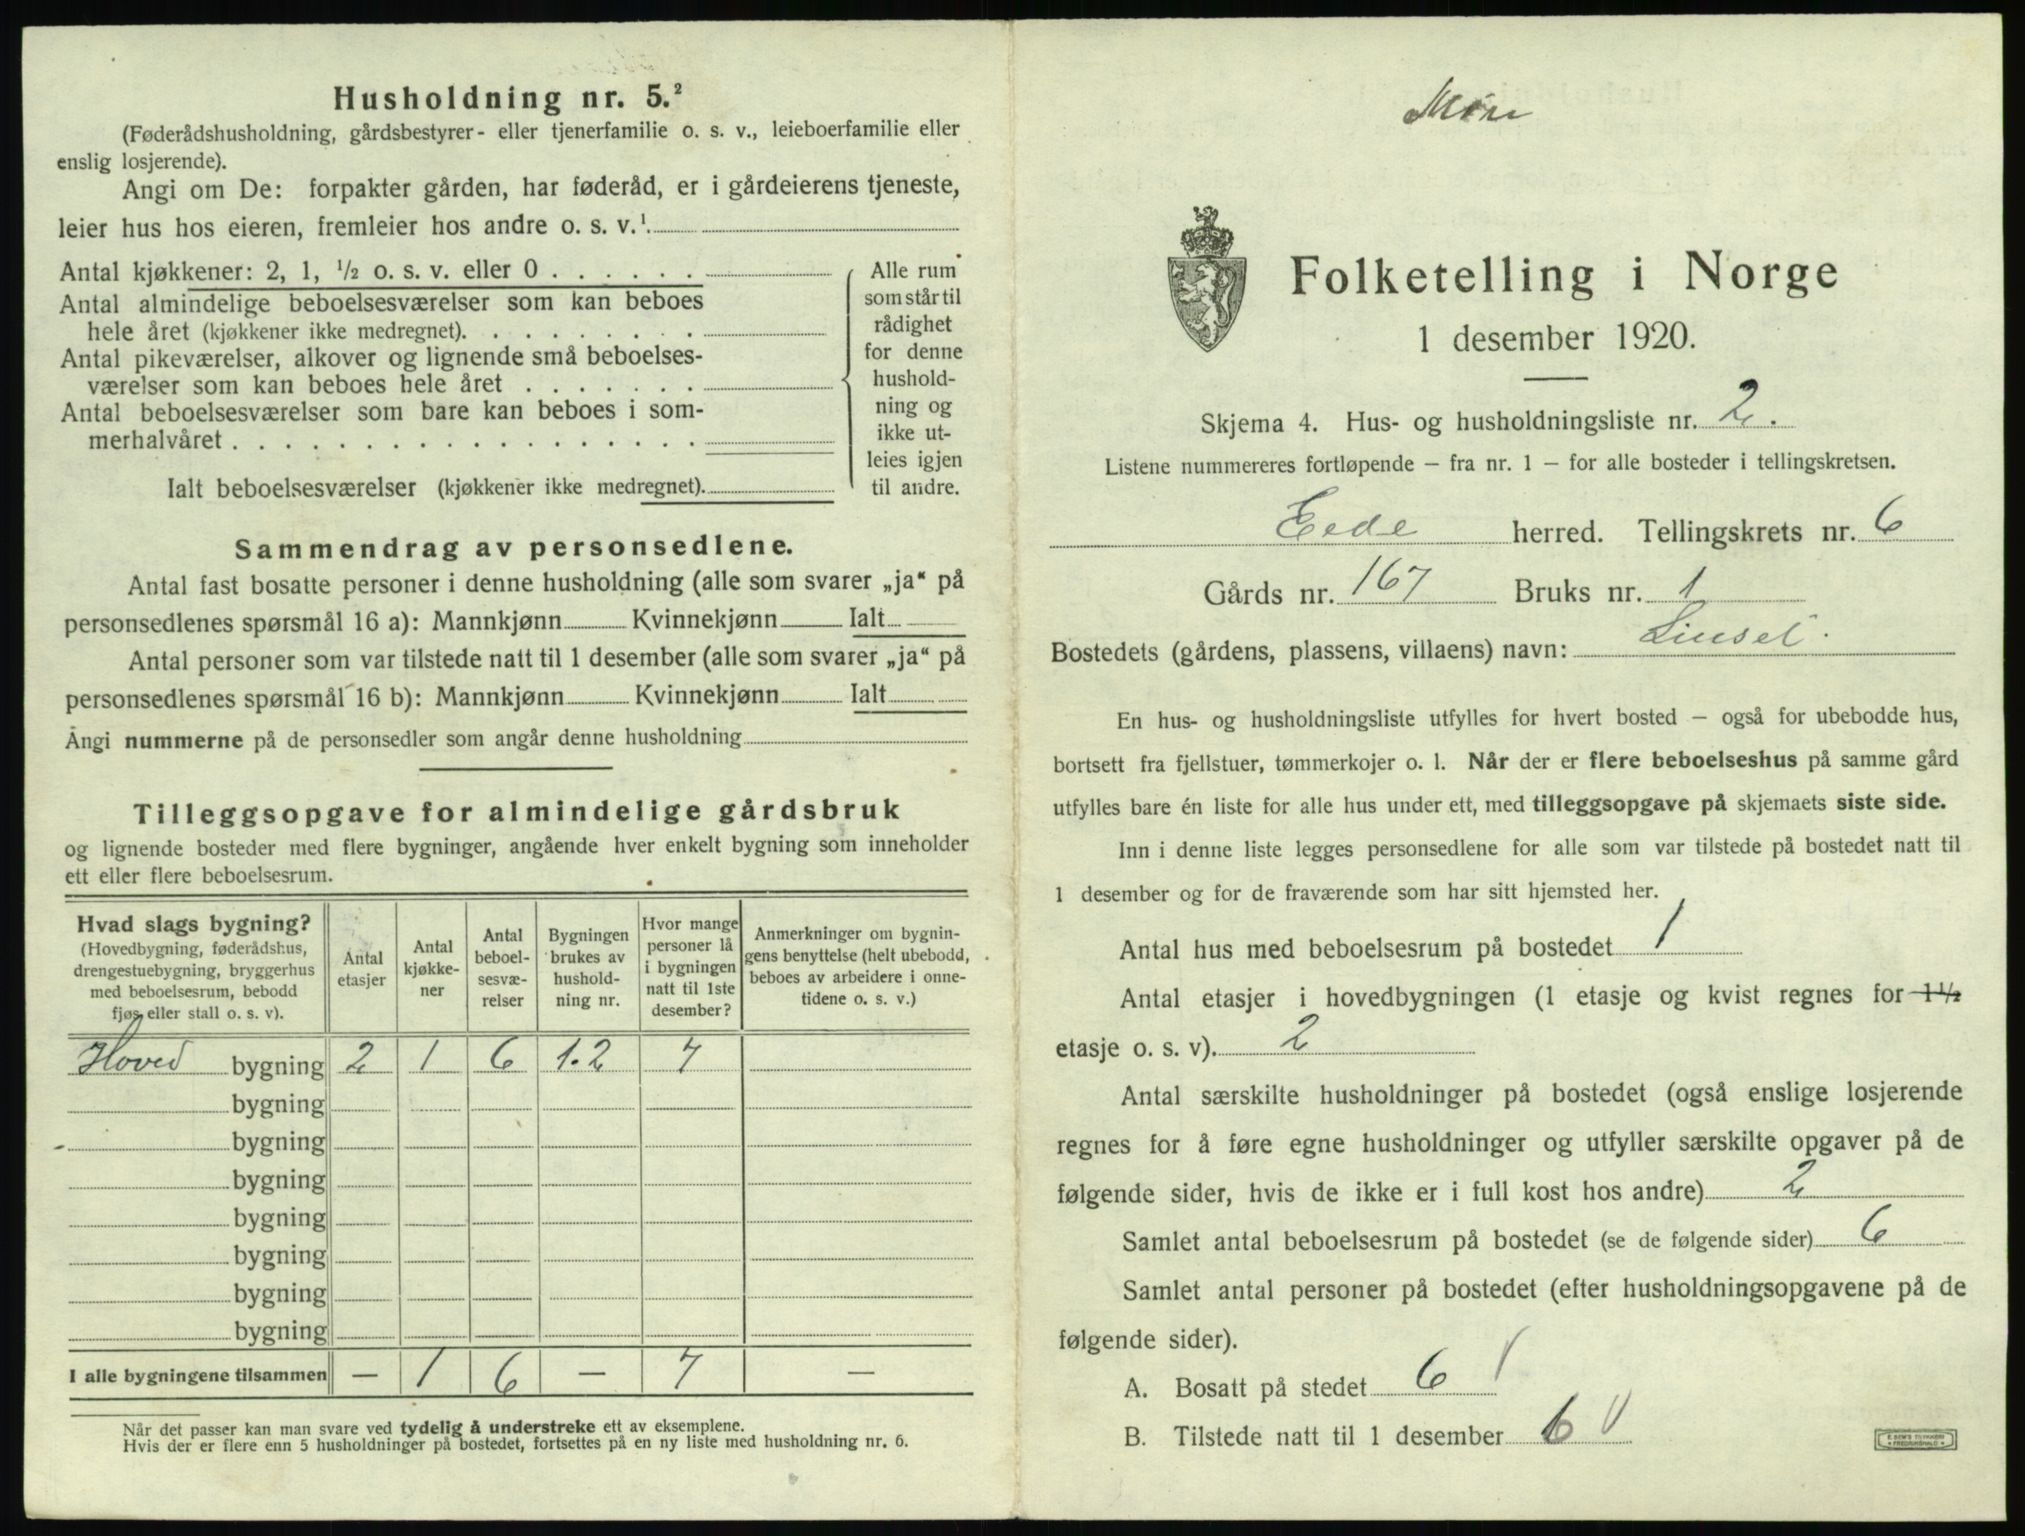 Husholdning nr. 5.²
(Føderådshusholdning, gårdsbestyrer- eller tjenerfamilie o. s. v., leieboerfamilie eller
enslig losjerende).
Angi om De: forpakter gården, har føderåd, er i gårdeierens tjeneste,
leier hus hos eieren, fremleier hos andre o. s. v.¹
Antal kjøkkener: 2, 1, ½ o. s. v. eller 0 . . . . . .
Antal almindelige beboelsesværelser som kan beboes
hele året (kjøkkener ikke medregnet). . . . . . . . .
Antal pikeværelser, alkover og lignende små beboelses-
værelser som kan beboes hele året . . . . . . .
Antal beboelsesværelser som bare kan beboes i som-
merhalvåret . . . . . . . . . . . . . . . . . .
Ialt beboelsesværelser (kjøkkener ikke medregnet).
Alle rum
som står til
rådighet
for denne
hushold-
ning og
ikke ut-
leies igjen
til andre.
Sammendrag av personsedlene.
Antal fast bosatte personer i denne husholdning (alle som svarer „ja“ på
personsedlenes spørsmål 16 a): Mannkjønn Kvinnekjønn Ialt
Antal personer som var tilstede natt til 1 desember (alle som svarer „ja“ på
personsedlenes spørsmål 16 b): Mannkjønn Kvinnekjønn Ialt
Angi nummerne på de personsedler som angår denne husholdning
Tilleggsopgave for almindelige gårdsbruk
og lignende bosteder med flere bygninger, angående hver enkelt bygning som inneholder
ett eller flere beboelsesrum.
Hvad slags bygning?
(Hovedbygning, føderådshus,
drengestuebygning, bryggerhus
med beboelsesrum, bebodd
fjøs eller stall o. s. v).
Antal
etasjer
Antal
kjøkke-
ner
Antal
beboel-
sesvæ-
relser
Bygningen
brukes av
hushold-
ning nr.
Hvor mange
personer lå
i bygningen
natt til 1ste
desember?
Anmerkninger om bygnin-
gens benyttelse (helt ubebodd,
beboes av arbeidere i onne-
tidene o. s. v.)
Hoved bygning 2 1 6 1.2 7
bygning
bygning
bygning
bygning
bygning
bygning
bygning
I alle bygningene tilsammen — 1 6 — 7 —
Når det passer kan man svare ved tydelig å understreke ett av eksemplene.
Hvis der er flere enn 5 husholdninger på bostedet, fortsettes på en ny liste med husholdning nr. 6.
Møre
Folketelling i Norge
1 desember 1920.
Skjema 4. Hus- og husholdningsliste nr. 2.
Listene nummereres fortløpende — fra nr. 1 — for alle bosteder i tellingskretsen.
Eede herred. Tellingskrets nr. 6
Gårds nr. 167 Bruks nr. 1
Bostedets (gårdens, plassens, villaens) navn: Linset.
En hus- og husholdningsliste utfylles for hvert bosted — også for ubebodde hus,
bortsett fra fjellstuer, tømmerkojer o. l. Når der er flere beboelseshus på samme gård
utfylles bare én liste for alle hus under ett, med tilleggsopgave på skjemaets siste side.
Inn i denne liste legges personsedlene for alle som var tilstede på bostedet natt til
1 desember og for de fraværende som har sitt hjemsted her.
Antal hus med beboelsesrum på bostedet 1
Antal etasjer i hovedbygningen (1 etasje og kvist regnes for 1½
etasje o. s. v). 2
Antal særskilte husholdninger på bostedet (også enslige losjerende
regnes for å føre egne husholdninger og utfyller særskilte opgaver på de
følgende sider, hvis de ikke er i full kost hos andre) 2
Samlet antal beboelsesrum på bostedet (se de følgende sider) 6
Samlet antal personer på bostedet (efter husholdningsopgavene på de
følgende sider).
A. Bosatt på stedet 6
B. Tilstede natt til 1 desember 6